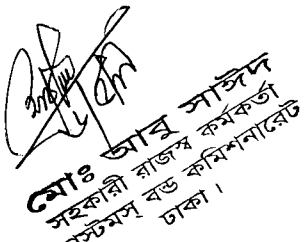 মোঃ আবু সাঈদ
সহকারী রাজস্ব কর্মকর্তা
কাস্টমস্ বন্ড কমিশনারেট
ঢাকা।